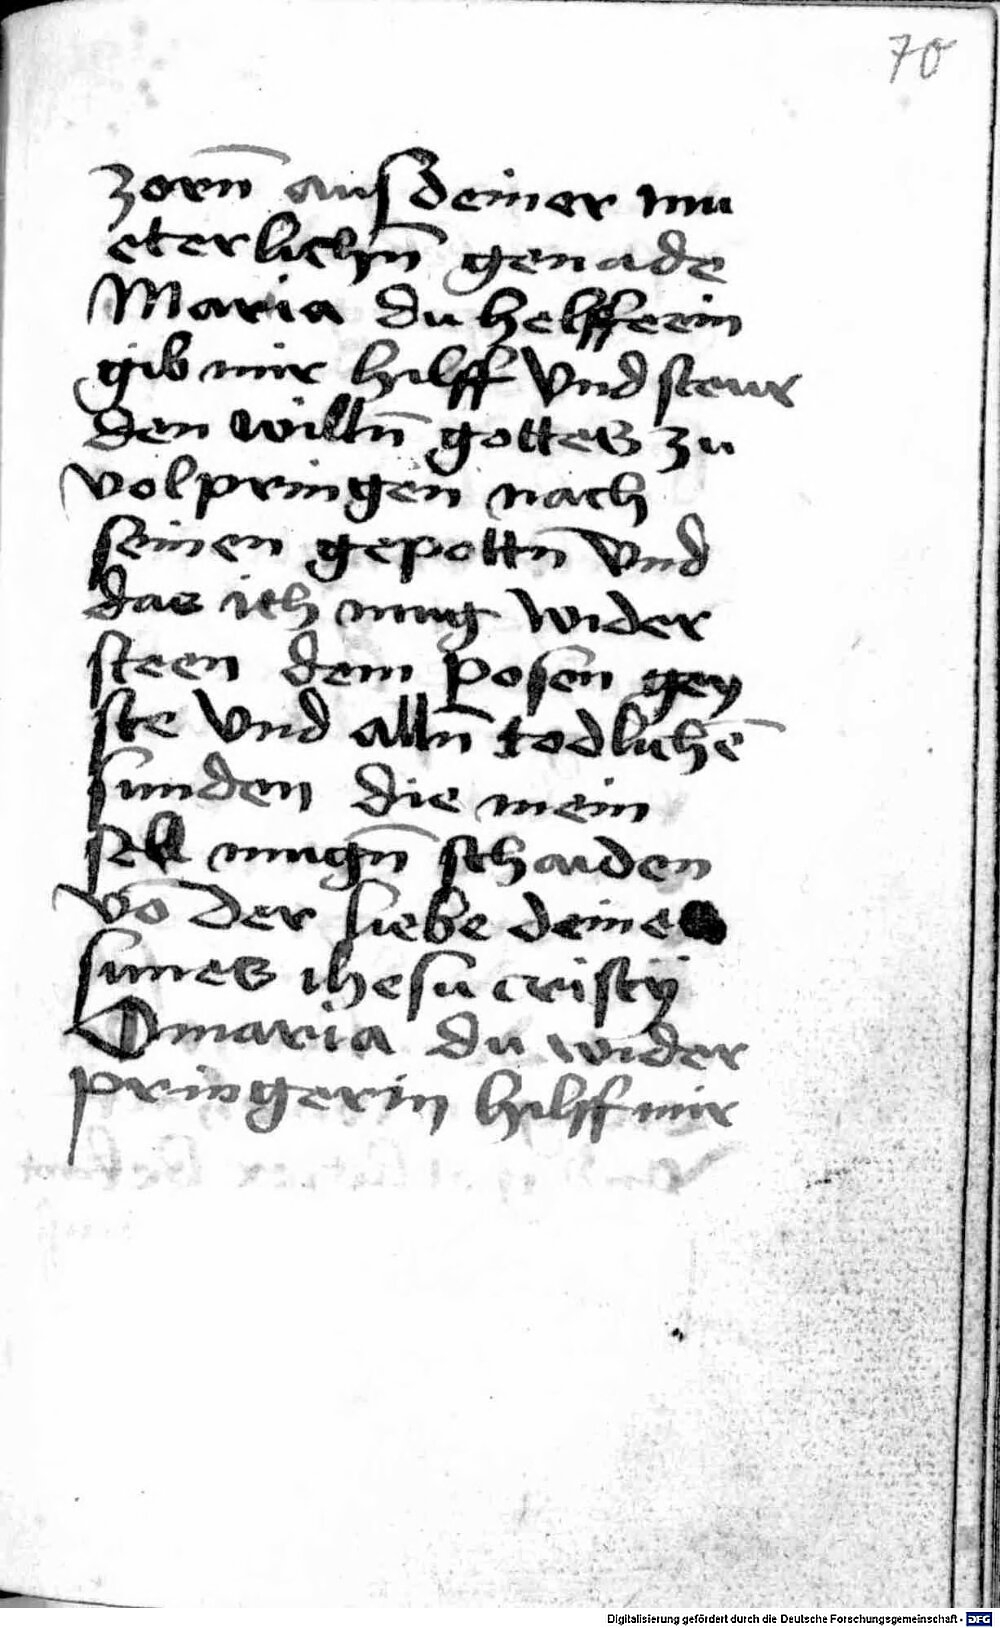 70
zorn̄ aus deiner mu
eterlichn̄ genade
Maria du helfferin
gib mir hilff vnd steur
den willn̄ gottes zu
volpringen nach
seinen gepottn̄ vnd
das ich mug wider
steen dem posen̄ gey
ste vnd alln̄ todlichē
sunden die mein
sel mugn̄ schaiden
vō der liebe deines
sunes ihesu cristÿ
O maria du wider
pringerin hilff mir
Digitalisierung gefördert durch die Deutsche Forschungsgemeinschaft - DFG